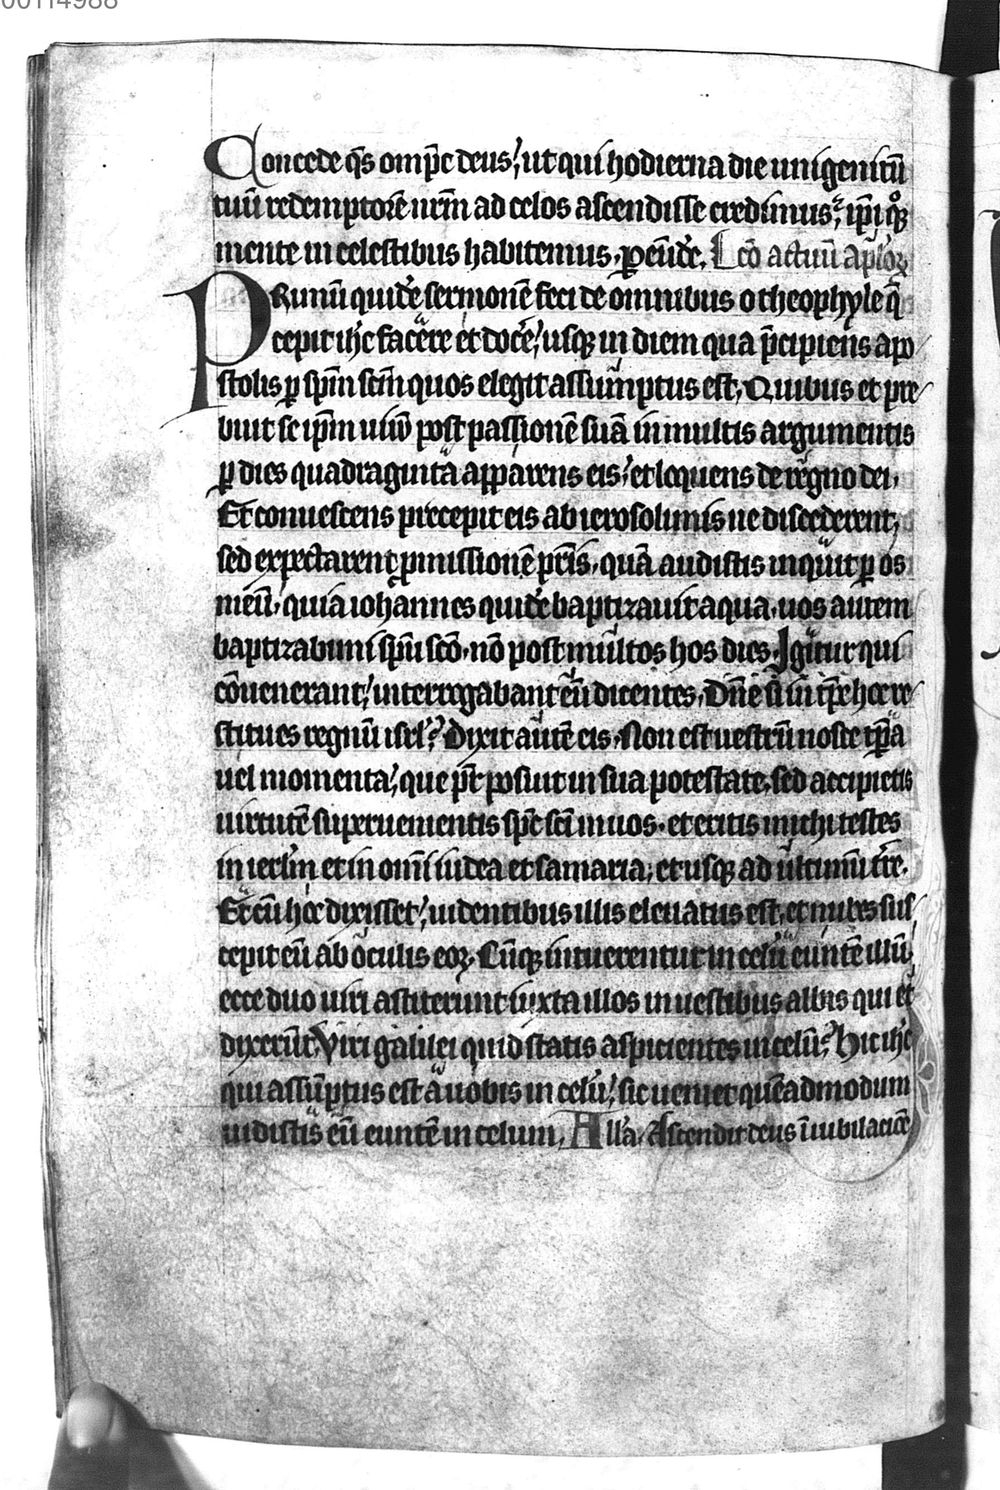 00114988
Concede q̄s omp̄c deus, ut qui hodierna die unigenitū
tuū redemptorē nr̄m ad celos ascendisse credimus, ip̄i qͦꝫ
mente in celestibus habitemus. ꝑ eūdē. Lcō actuū ap̄loꝝ
PRimū quidē sermonē feci de omnibus o theophyle q̄
cepit ih̄c facere et docē, usqꝫ in diem qua p̄cipiens apo
stolis ꝑ sp̄m sc̄m quos elegit assumptus est. Quibus et pre
buit se ip̄m uiuū post passionē suā in multis argumentis
ꝑ dies quadraginta apparens eis, et loquens de regno dei.
Et conuescens precepit eis ab ierosolimis ne discederent,
sed expectarent ꝓmissionē pr̄is, quā audistis inquit ꝑ os
meū, quia iohannes quidē baptizauit aqua, uos autem
baptizabimi sp̄u sc̄o, nō post multos hos dies. Igitur qui
cōuenerant, interrogabant eū dicentes, Dn̄e si in tp̄r hoc re
stitues regnū isrl̄? Dixit autē eis. Non est uestrū nosce tp̄ra
uel momenta, que pr̄ posuit in sua potestate, sed accipietis
uirtutē superuenientis sp̄c sc̄i in uos. et eritis michi testes
in ierl̄m et in om̄i iudea et samaria, et usqꝫ ad ultimū tr̄e.
Et cū hoc dixisset, uidentibus illis eleuatus est, et nubes sus
cepit eū ab oculis eoꝝ. Cūqꝫ intuerentur in celū euntē illū,
ecce duo uiri astiterunt iuxta illos in uestibus albis qui et
dixerūt. Viri galilei quid statis aspicientes in celū? Hic ih̄c
qui assūptus est a uobis in celū, sic ueniet quēadmodum
uidistis eū euntē in celum. All'a. Ascendit deus ī iubilacōe